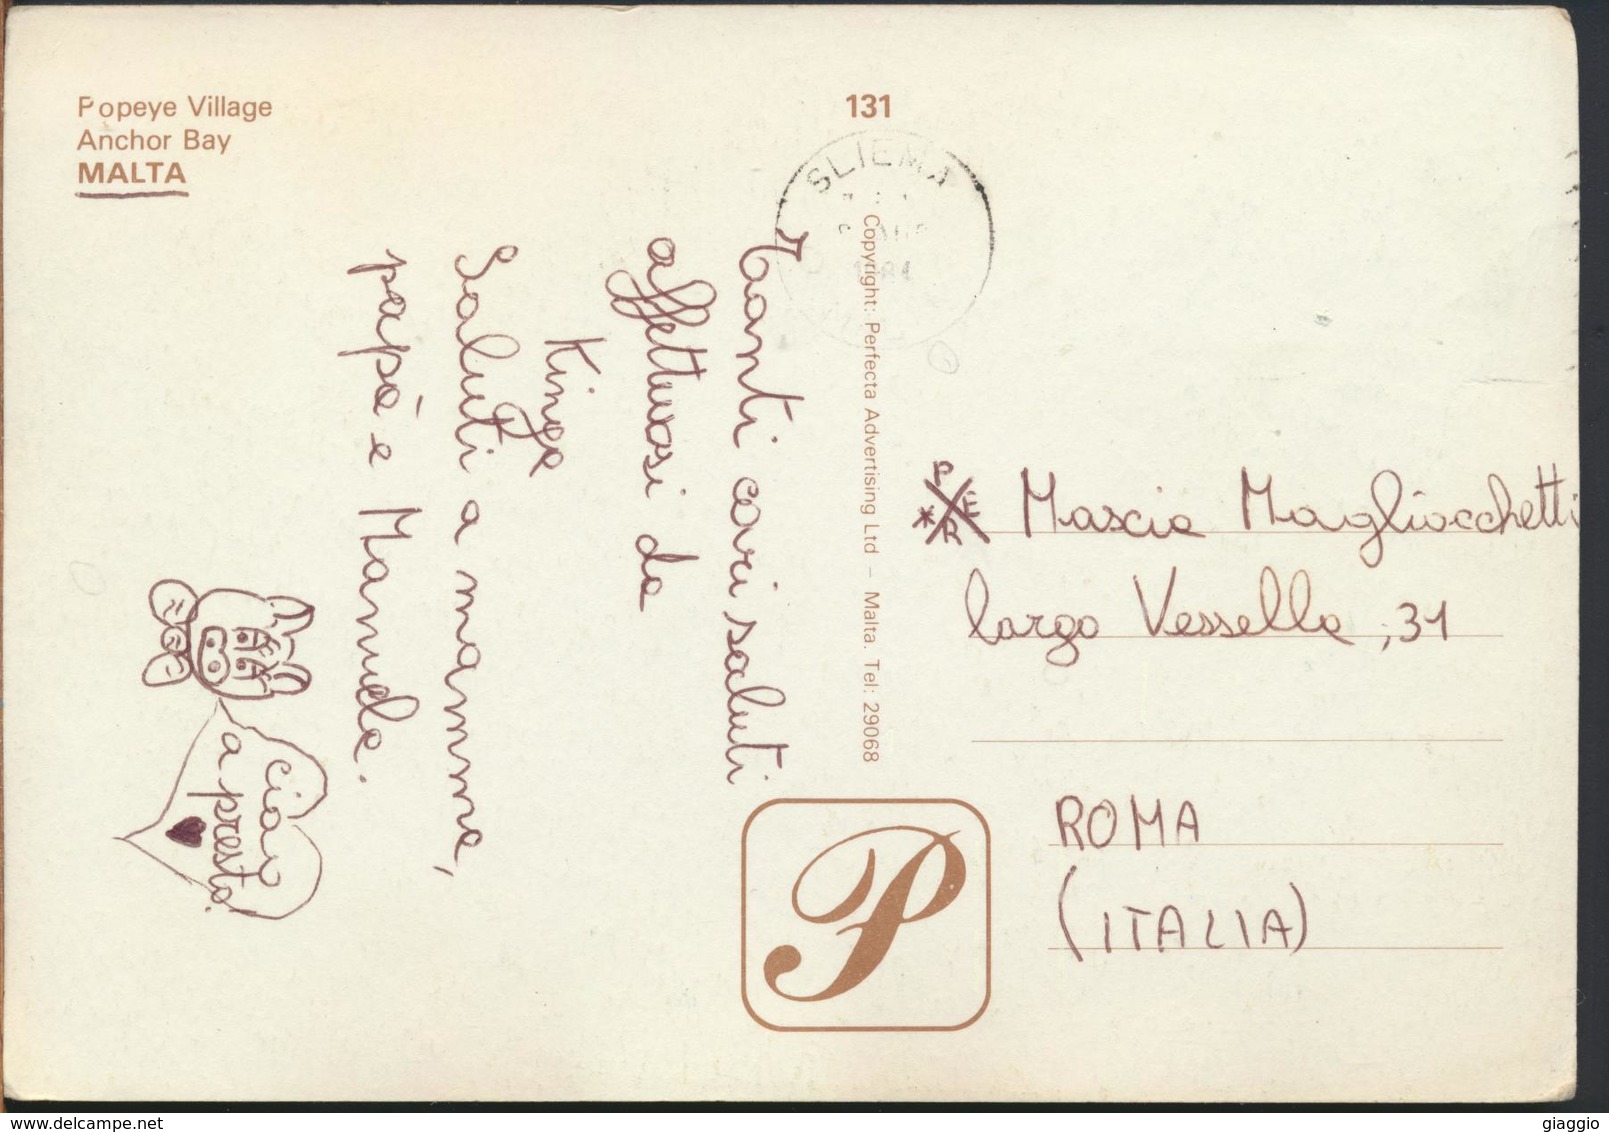 Popeye Village
Anchor Bay
MALTA
131
SLIEMA
Copyright: Perfecta Advertising Ltd – Malta. Tel: 29068
Tanti cari saluti
affettuosi da
Kinga
Saluti a mamma,
papà e Manuela.
ciao
a presto!
PER
Mascia Magliocchetti
largo Vessella, 31
ROMA
(ITALIA)
P
www.delcampe.net
giaggio